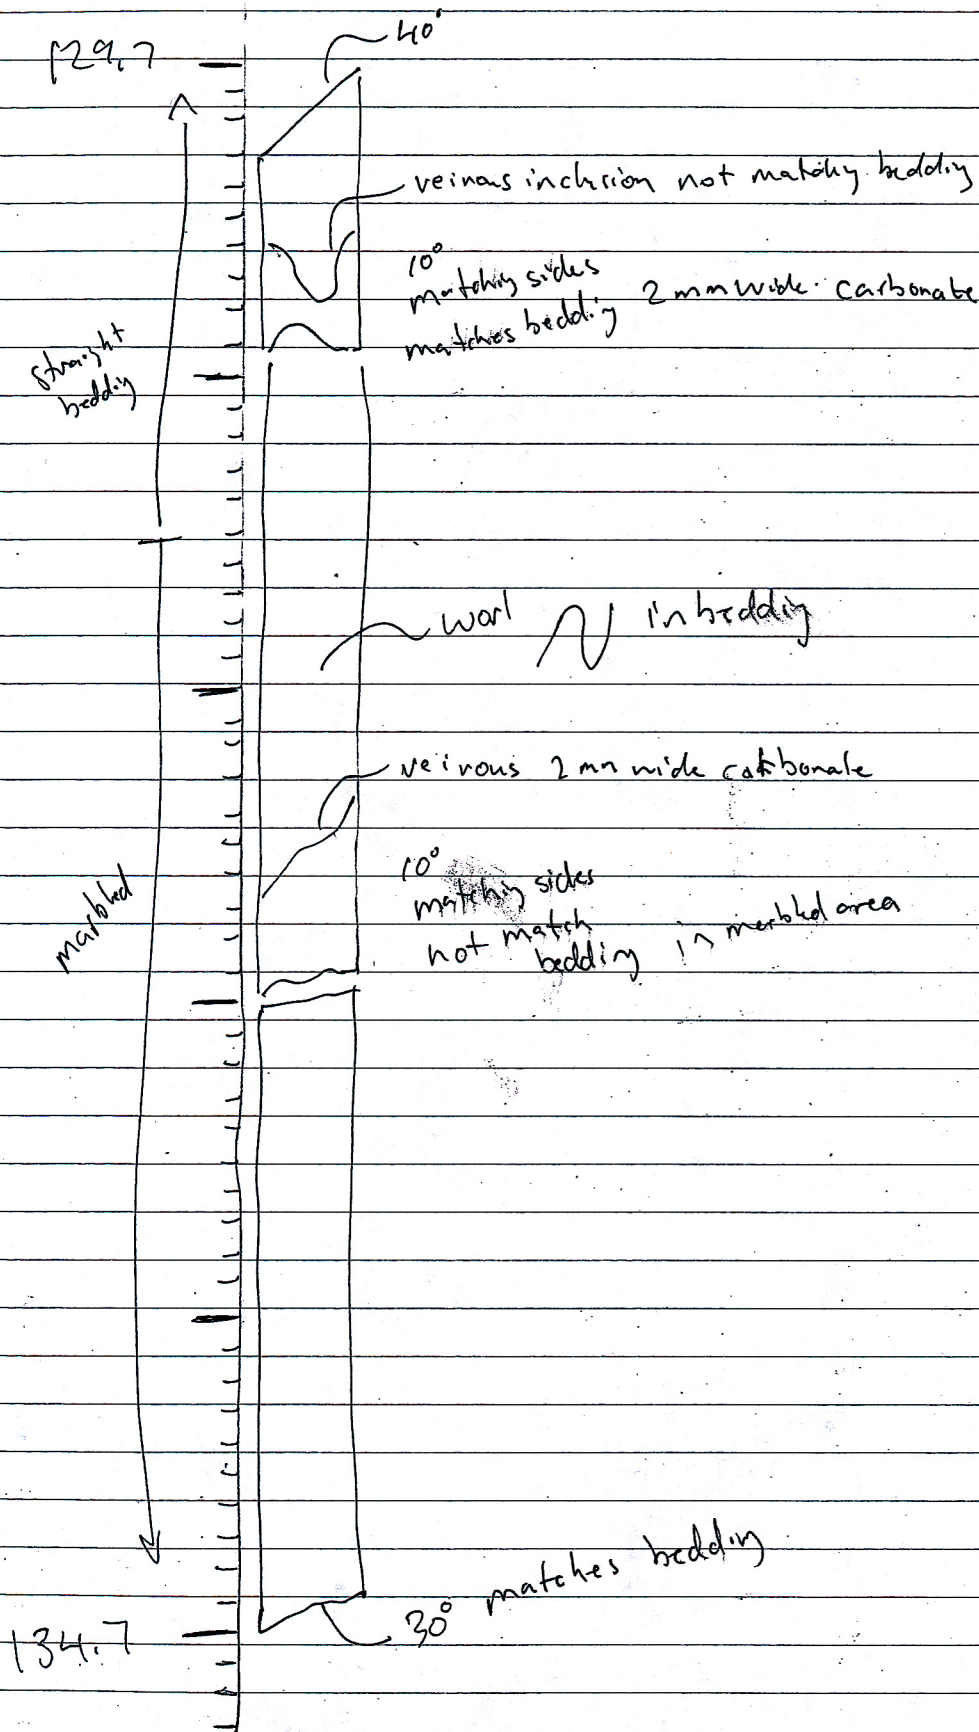 129.7
40°
veinous inclusion not matching bedding
10°
matching sides
matches bedding 2mm wide carbonate
straight
bedding
worl in bedding
veinous 2mm wide carbonate
10°
matching sides
not match
bedding in marbled area
marbled
matches bedding
30°
134.7